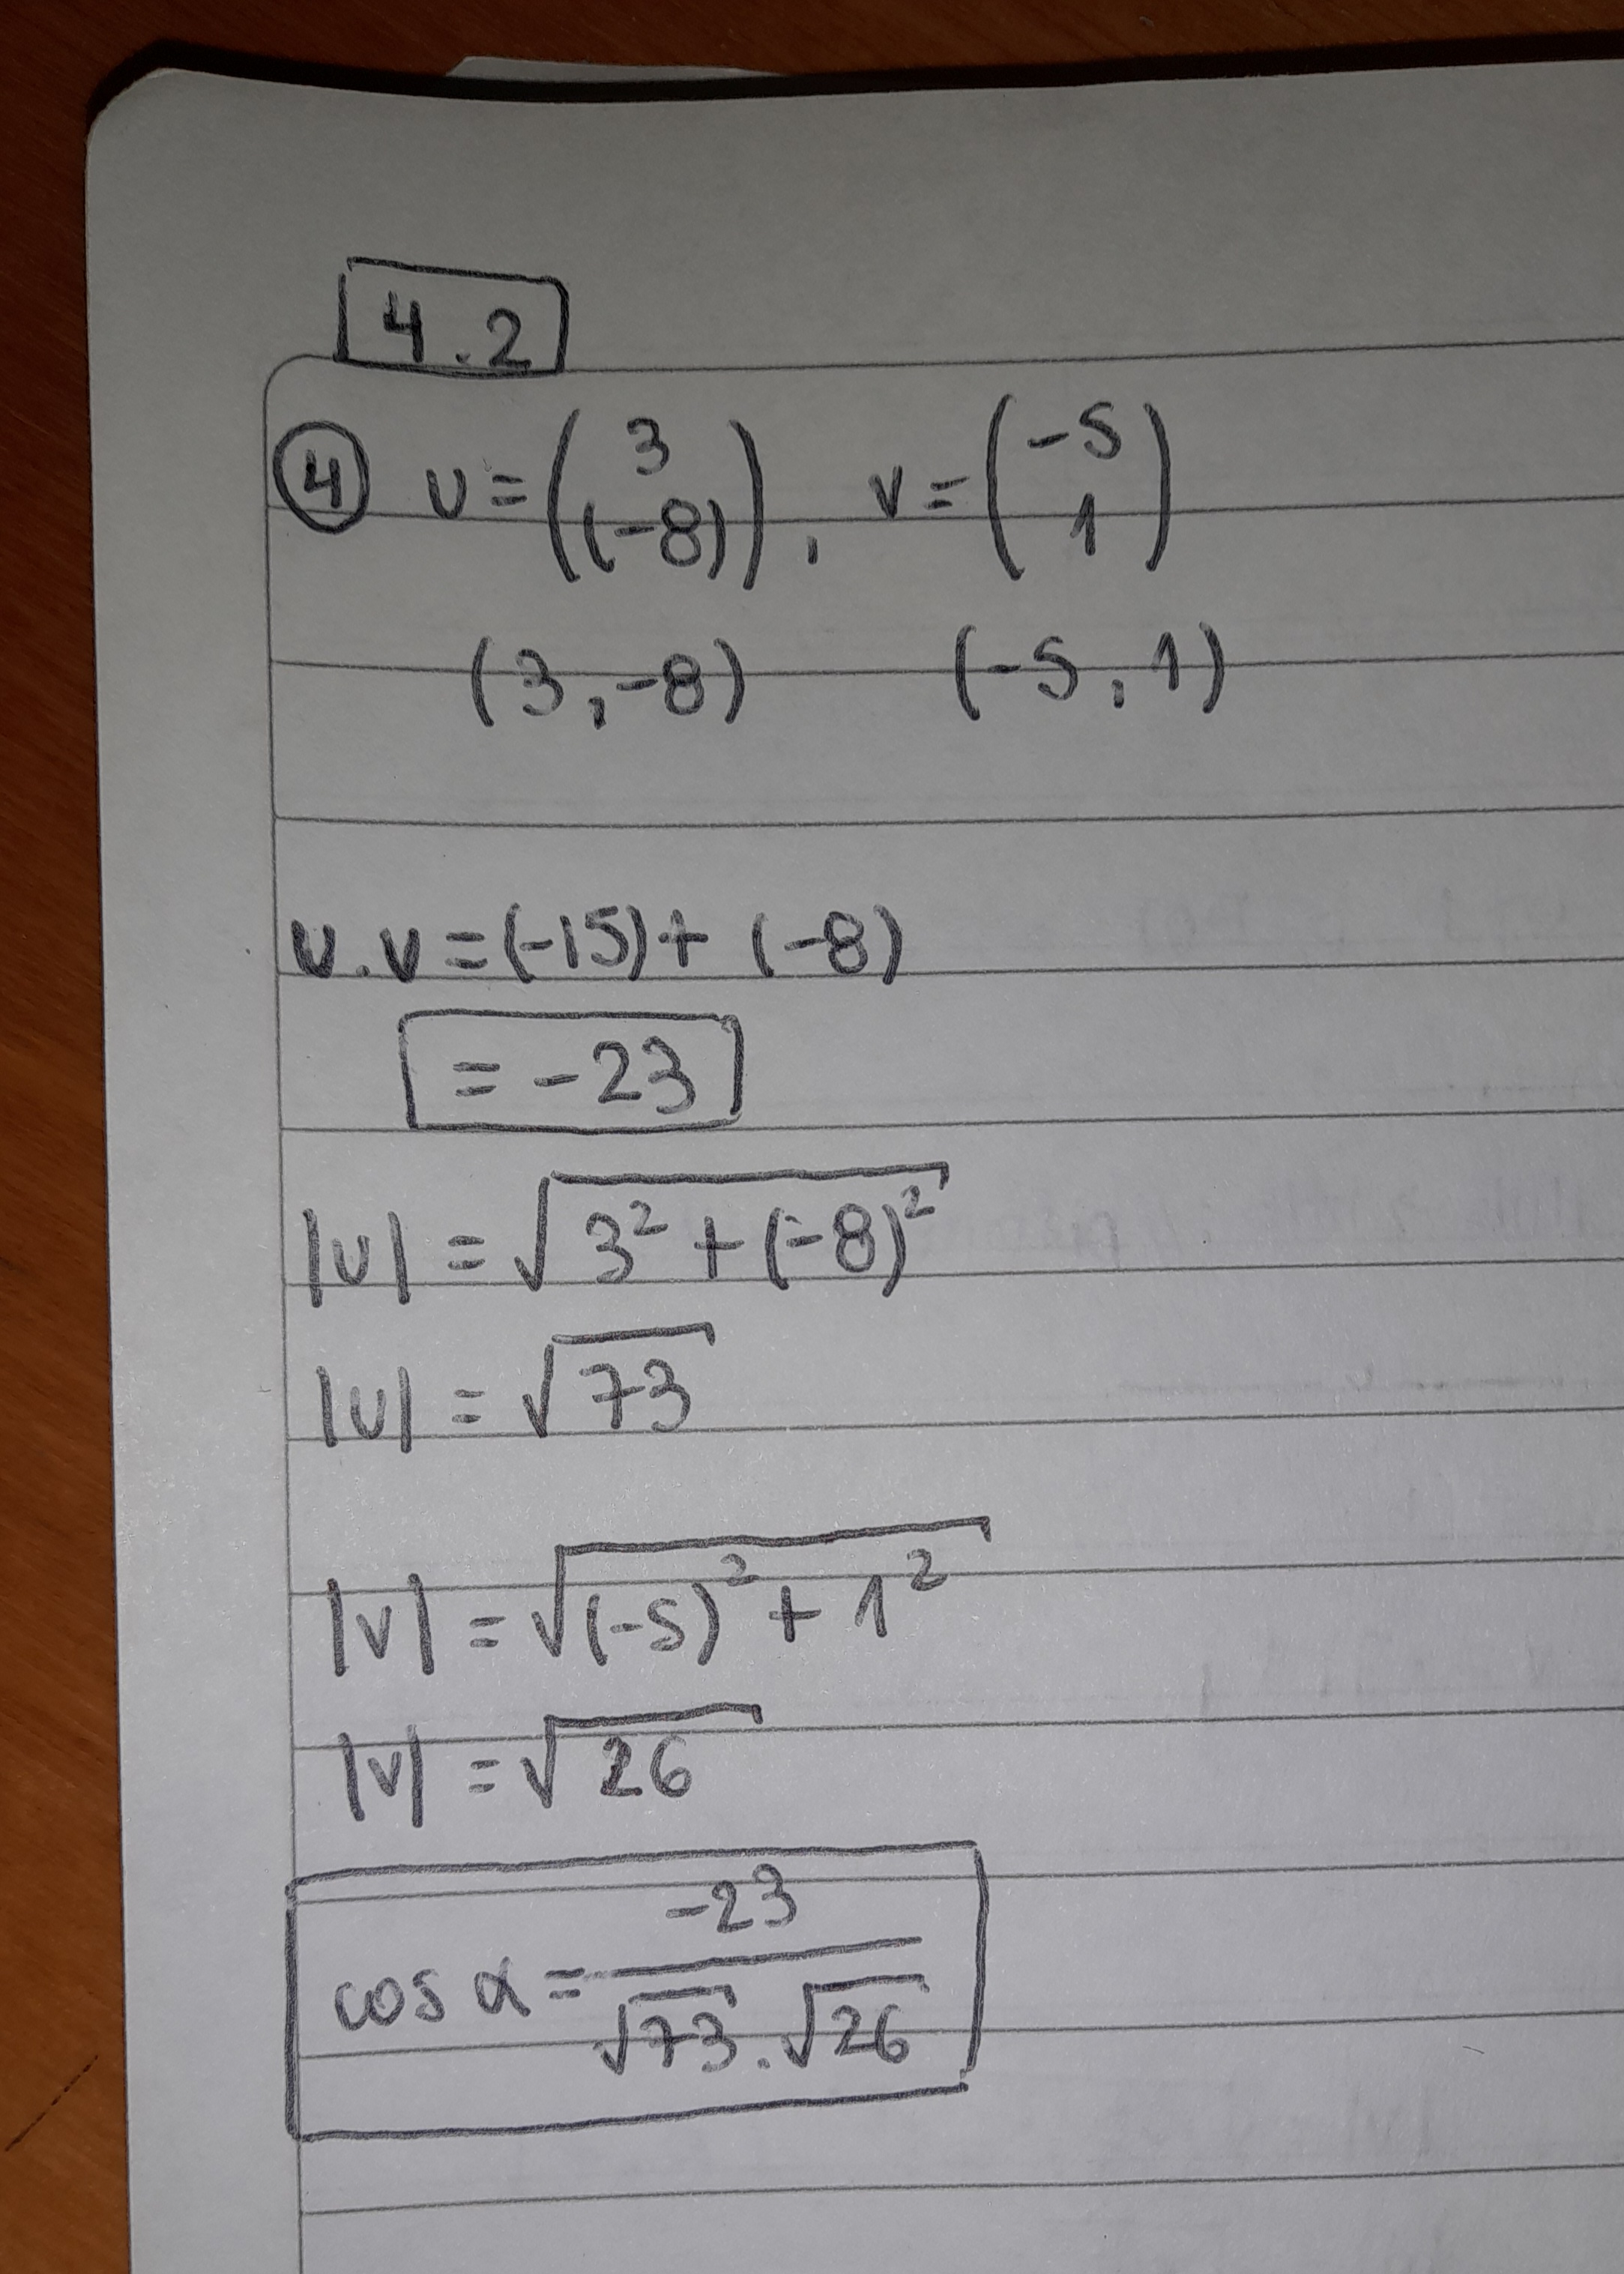 4.2
④ u = ( 3 (-8) ), v = ( -5 1 )
(3,-8) (-5,1)
u.v = (-15) + (-8)
= -23
|u| = √(3² + (-8)²)
|u| = √73
|v| = √((-5)² + 1²)
|v| = √26
cos α = -23 / √73 . √26